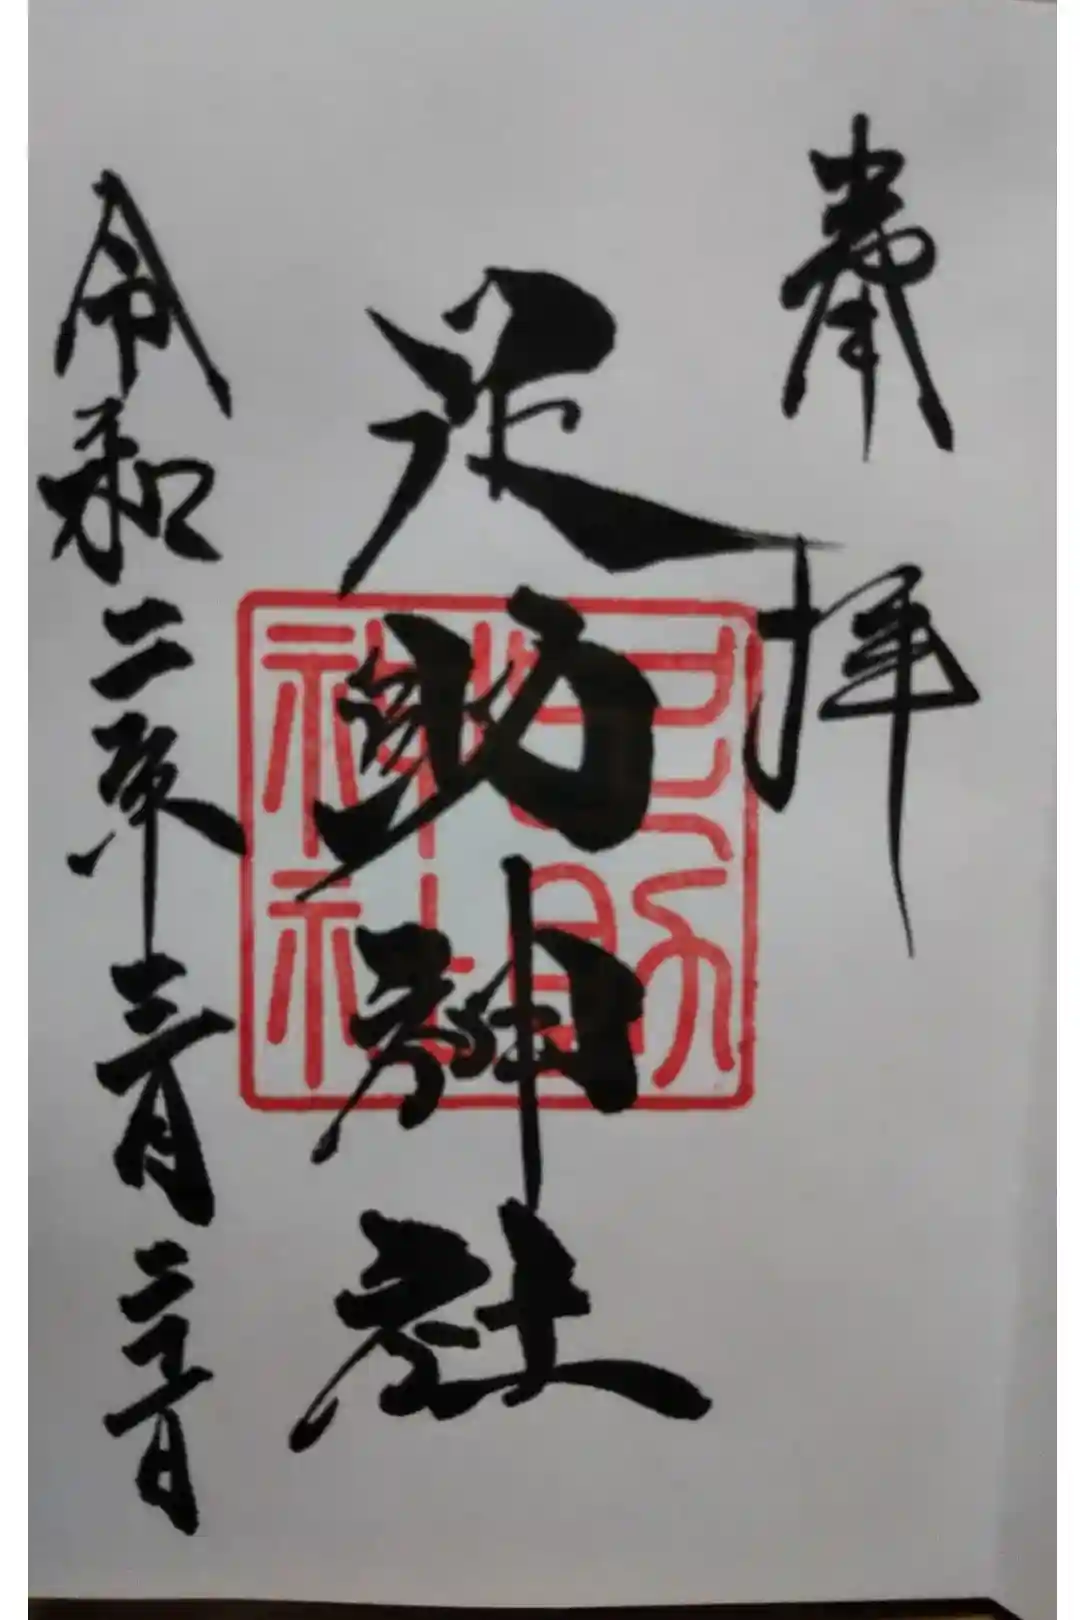 奉拝
足助神社
令和二年三月二十一日
足助神社